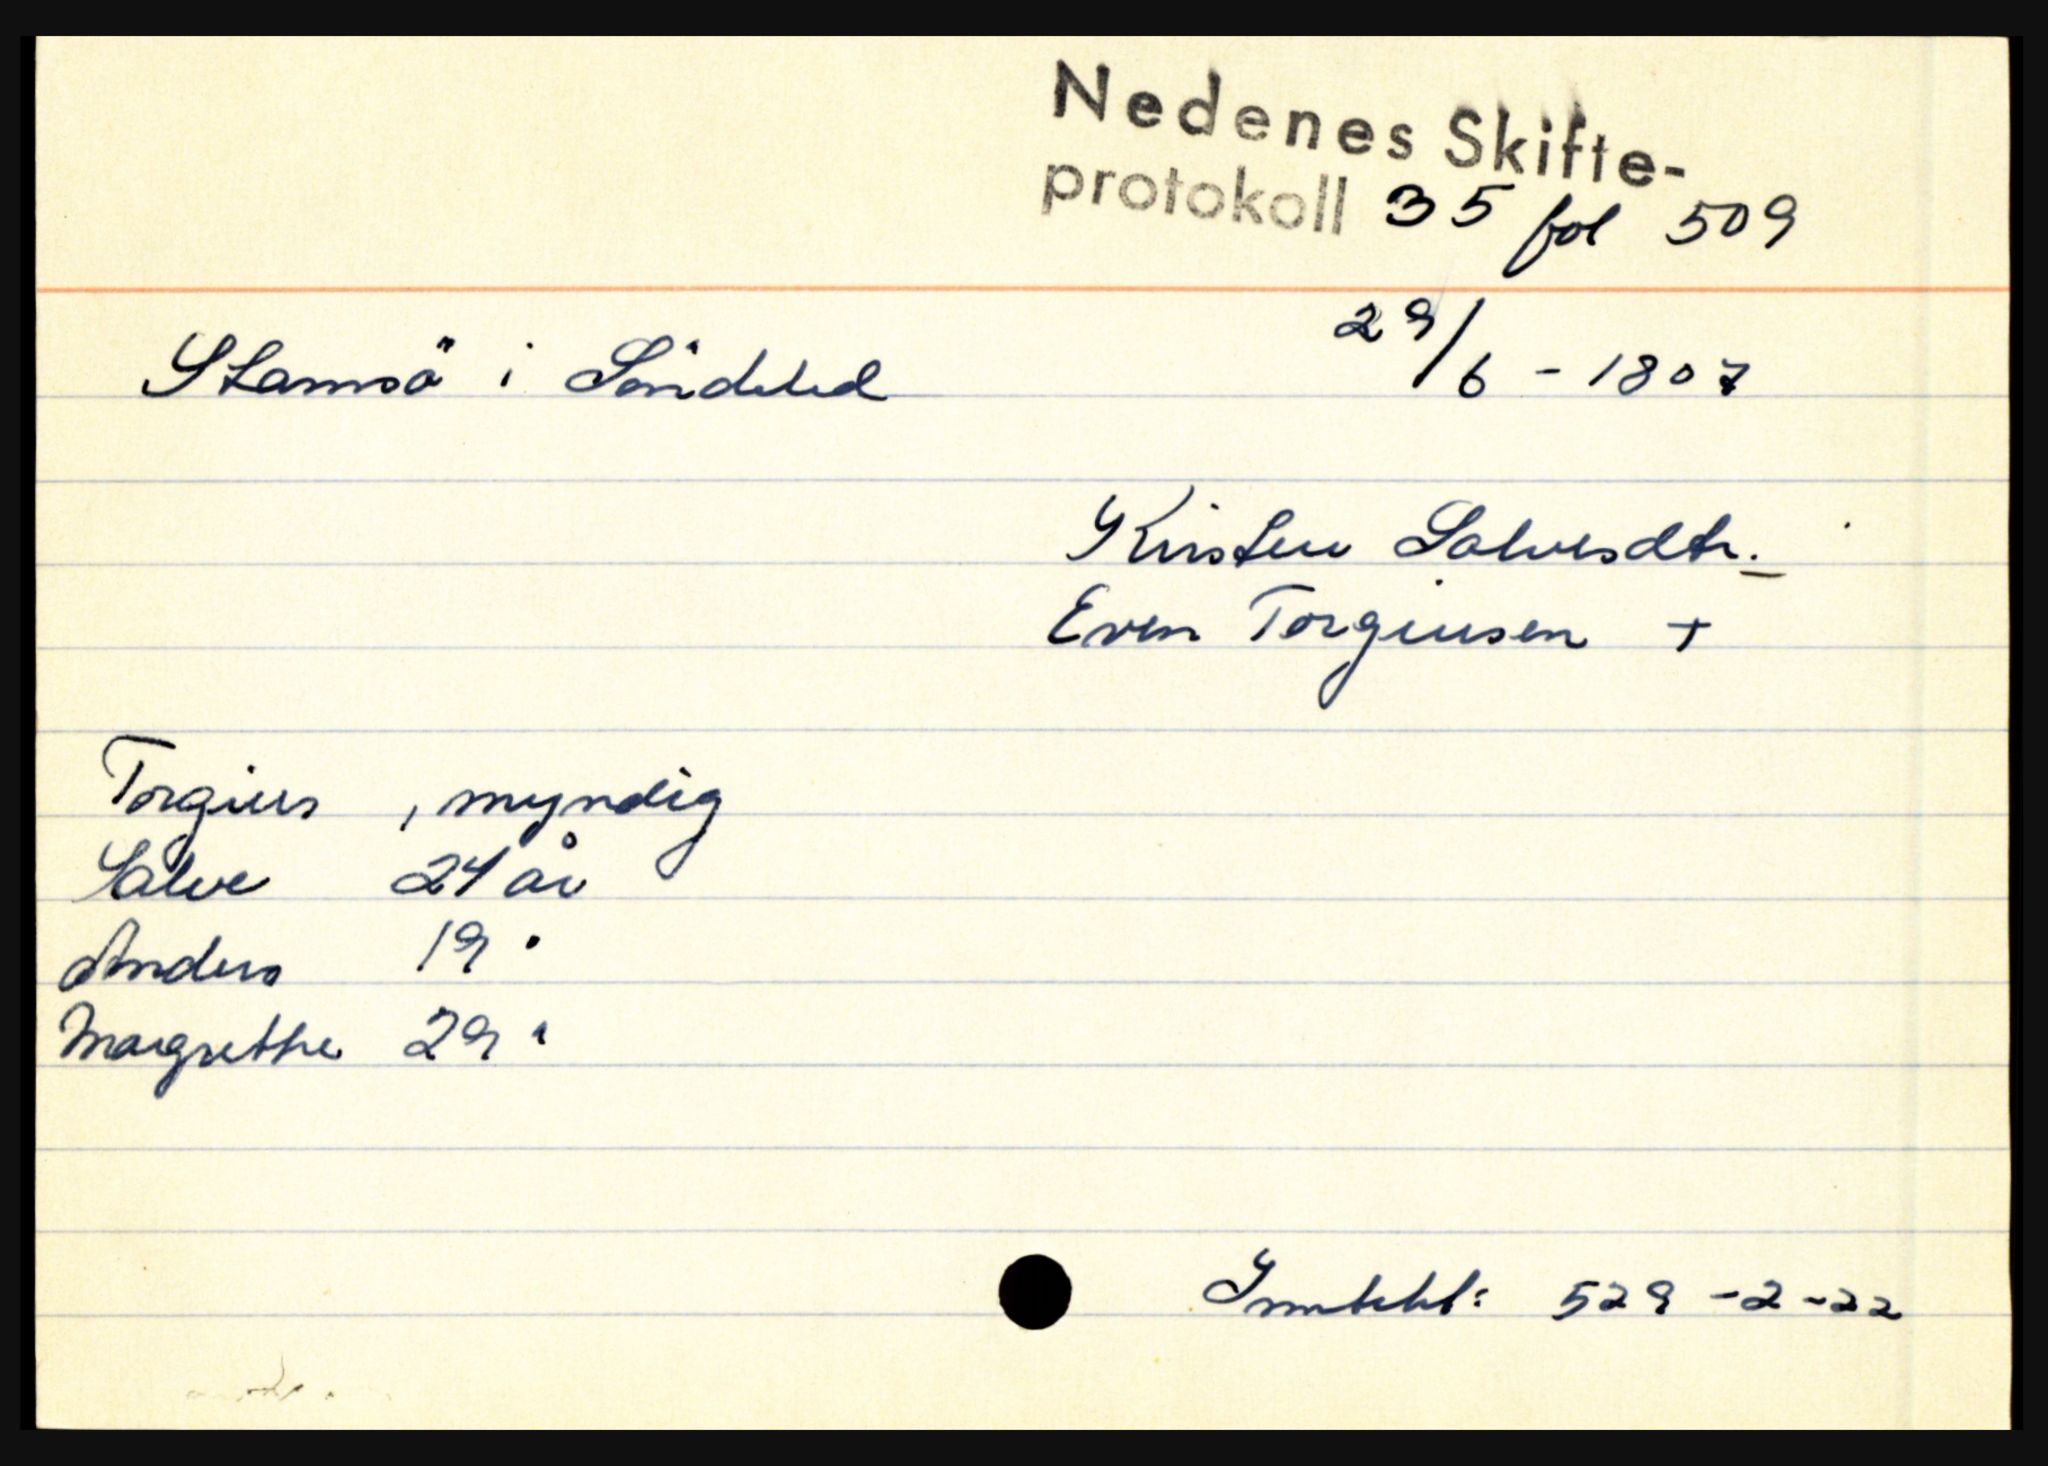 Nedenes Skifte-
protokoll 35 fol 509
29/6 - 1807
Stamsö i Söndeled
Kirsten Salvesdtr.
Even Torgiusen +
Torgius , myndig
Salve 24 år
Anders 19 "
Margrethe 29 "
Inntekt: 529 - 2 - 22